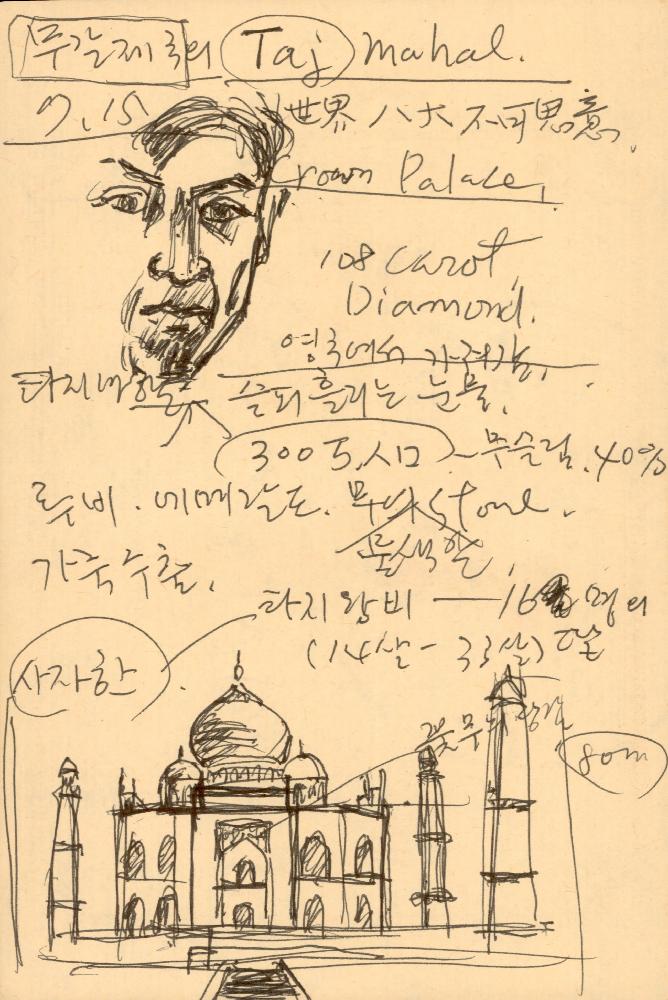 무갈제국의 Taj mahal.
7.15
世界 八大 不可思意.
Crown Palace.
108 Carot
Diamond.
영국에서 가져감.
타지마할 슬피흘리는 눈물.
300万.人口 ~ 무슬림.40%
루비. 에메랄드. stone.
가죽수출.
타지왕비 — 16 명의
(14살 - 33살) 딸
사자한
꽃무늬
80m